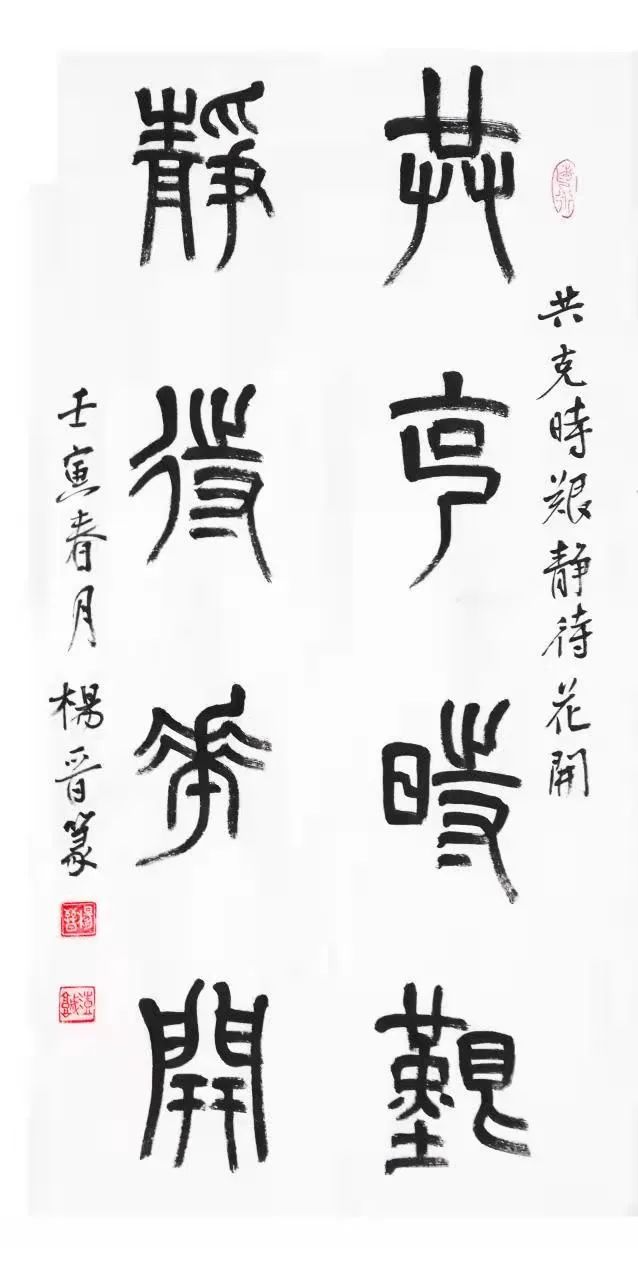 共克時艱靜待花開
共克時艱
靜待花開
壬寅春月楊晋篆
楊晋